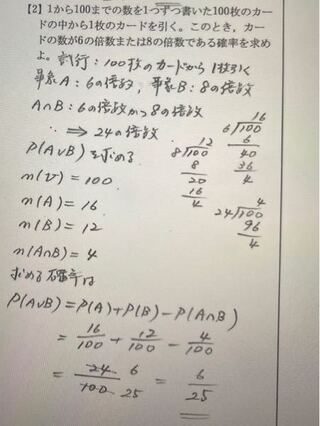 【2】1から100までの数を1つずつ書いた100枚のカー
ドの中から1枚のカードを引く。このとき、カー
ドの数が6の倍数または8の倍数である確率を求め
よ。 試行：100枚のカードから1枚引く
事象A：6の倍数，事象B：8の倍数
A∩B：6の倍数かつ8の倍数
⇒ 24の倍数
P(A∪B)を求める
n(U) = 100
n(A) = 16
n(B) = 12
n(A∩B) = 4
16
6)100
6
40
36
4
12
8)100
8
20
16
4
4
24)100
96
4
求める確率は
P(A∪B) = P(A) + P(B) - P(A∩B)
= 16/100 + 12/100 - 4/100
= 24/100 6 25 = 6/25